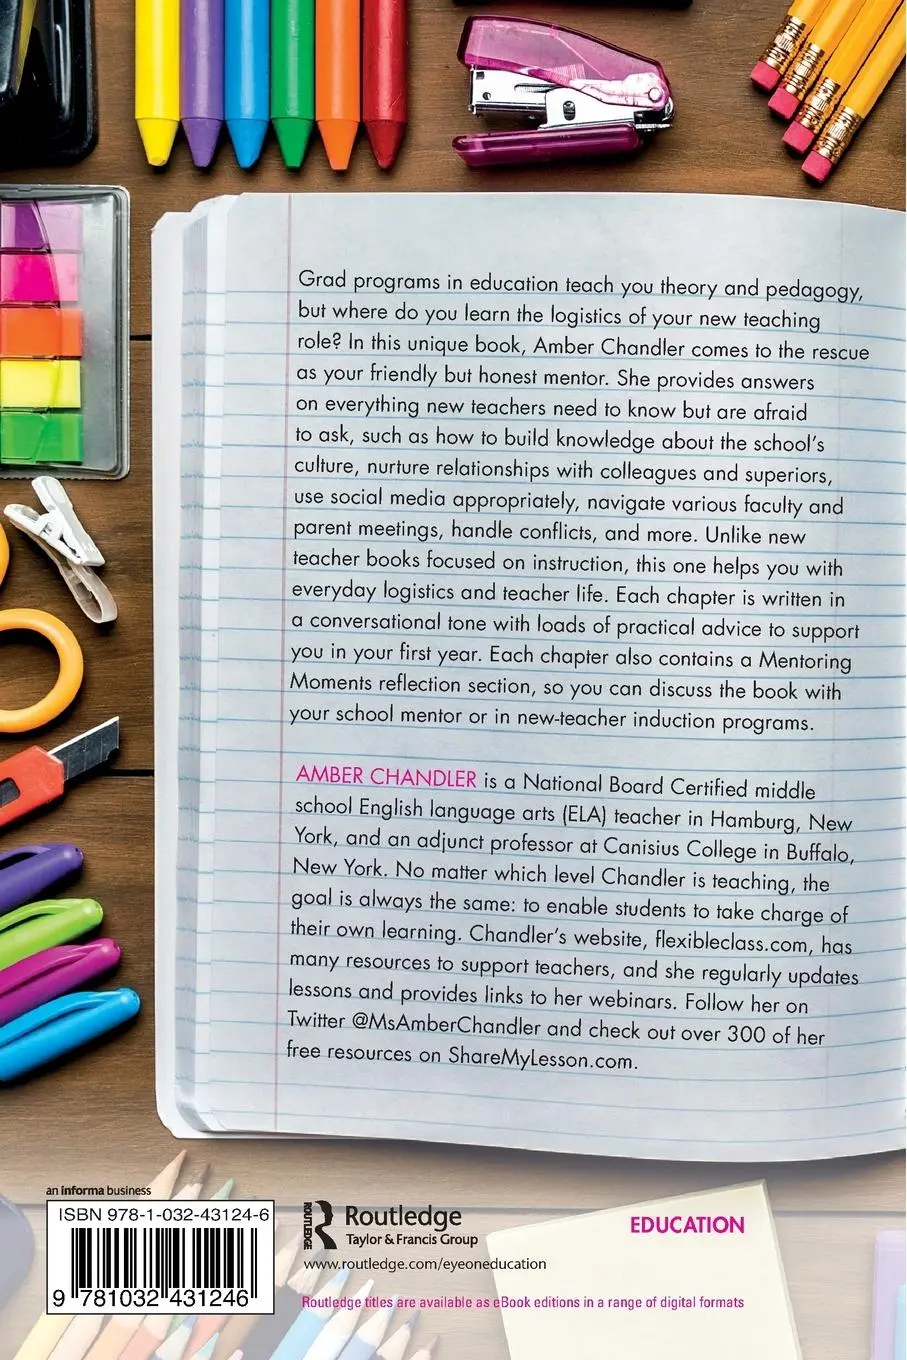 Grad programs in education teach you theory and pedagogy,
but where do you learn the logistics of your new teaching
role? In this unique book, Amber Chandler comes to the rescue
as your friendly but honest mentor. She provides answers
on everything new teachers need to know but are afraid
to ask, such as how to build knowledge about the school's
culture, nurture relationships with colleagues and superiors,
use social media appropriately, navigate various faculty and
parent meetings, handle conflicts, and more. Unlike new
teacher books focused on instruction, this one helps you with
everyday logistics and teacher life. Each chapter is written in
a conversational tone with loads of practical advice to support
you in your first year. Each chapter also contains a Mentoring
Moments reflection section, so you can discuss the book with
your school mentor or in new-teacher induction programs.
AMBER CHANDLER is a National Board Certified middle
school English language arts (ELA) teacher in Hamburg, New
York, and an adjunct professor at Canisius College in Buffalo,
New York. No matter which level Chandler is teaching, the
goal is always the same: to enable students to take charge of
their own learning. Chandler's website, flexibleclass.com, has
many resources to support teachers, and she regularly updates
lessons and provides links to her webinars. Follow her on
Twitter @MsAmberChandler and check out over 300 of her
free resources on ShareMyLesson.com.
an informa business
ISBN 978-1-032-43124-6
9 781032 431246
ROUTLEDGE
Routledge
Taylor & Francis Group
www.routledge.com/eyeoneducation
EDUCATION
Routledge titles are available as eBook editions in a range of digital formats